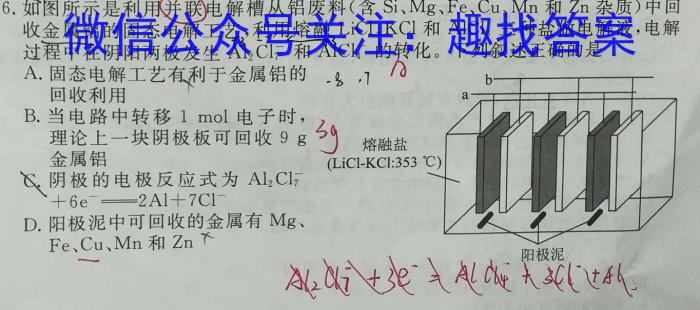 6. 如图所示是利用并联电解槽从铝废料(含 Si、Mg、Fe、Cu、Mn 和 Zn 杂质)中回
收金
微信公众号关注：趣找答案
电解
过程中在阴阳两极发生 Al₂Cl₇⁻ 和 AlCl₄⁻ 的转化。下列叙述正确的是
A. 固态电解工艺有利于金属铝的
回收利用
B. 当电路中转移 1 mol 电子时，
理论上一块阴极板可回收 9 g
金属铝
C. 阴极的电极反应式为 Al₂Cl₇⁻
+6e⁻══2Al+7Cl⁻
D. 阳极泥中可回收的金属有 Mg、
Fe、Cu、Mn 和 Zn
3g
b
a
熔融盐
(LiCl-KCl:353 ℃)
阳极泥
Al₂Cl₇⁻+3e⁻=AlCl₄⁻+3Cl⁻+Al